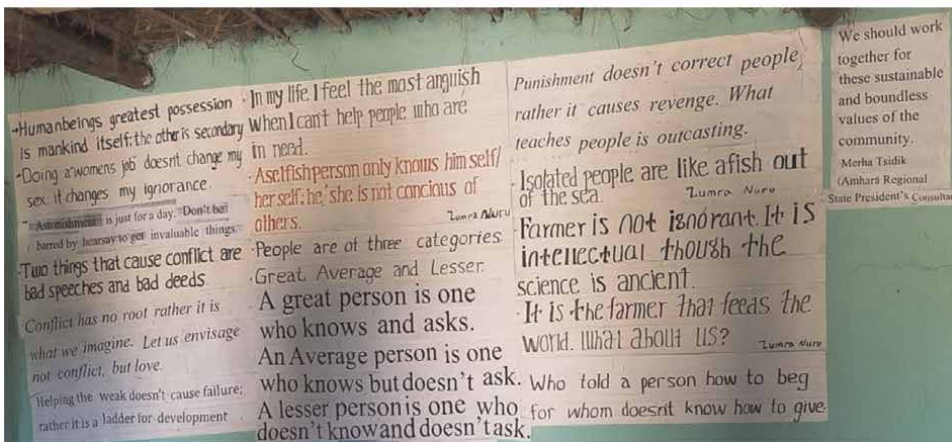 -Human beings greatest possession
is mankind itself; the other is secondary
-Doing a womens job doesnt change my
sex. it changes my ignorance.
"Astonishment is just for a day." Don't be
barred by hearsay to get invaluable things.
·Two things that cause conflict are
bad speeches and bad deeds.
Conflict has no root rather it is
what we imagine. Let us envisage
not conflict, but love.
Helping the weak doesn't cause failure;
rather it is a ladder for development.
·In my life I feel the most anguish
When I can't help people who are
in need.
·A selfish person only knows him self/
her self; he/she is not concious of
others.
Zumra Nuru
·People are of three categories
·Great, Average and Lesser.
A great person is one
who knows and asks.
An Average person is one
who knows but doesn't ask.
A lesser person is one who
doesn't know and doesn't ask.
Punishment doesn't correct people,
rather it causes revenge. What
teaches people is outcasting.
·Isolated people are like a fish out
of the sea.
Zumra Nuru
·Farmer is not ignorant. It is
intellectual though the
science is ancient.
·It is the farmer that feeds the
world. What about us?
Zumra Nuru
Who told a person how to beg
for whom doesnt know how to give
We should work
together for
these sustainable
and boundless
values of the
community.
Merha Tsidik
(Amhara Regional
State President's Consultant